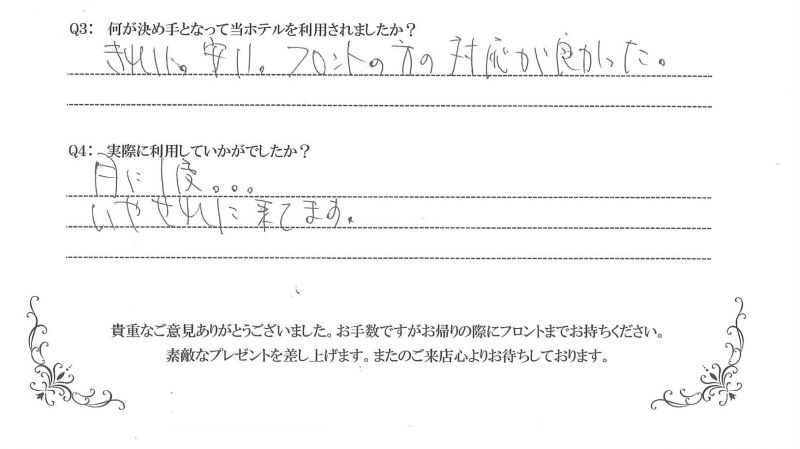 Q3： 何が決め手となって当ホテルを利用されましたか？
きれい。安い。フロントの方の対応が良かった。
Q4： 実際に利用していかがでしたか？
月に1度。。。
いやされに来てます。
貴重なご意見ありがとうございました。お手数ですがお帰りの際にフロントまでお持ちください。
素敵なプレゼントを差し上げます。またのご来店心よりお待ちしております。